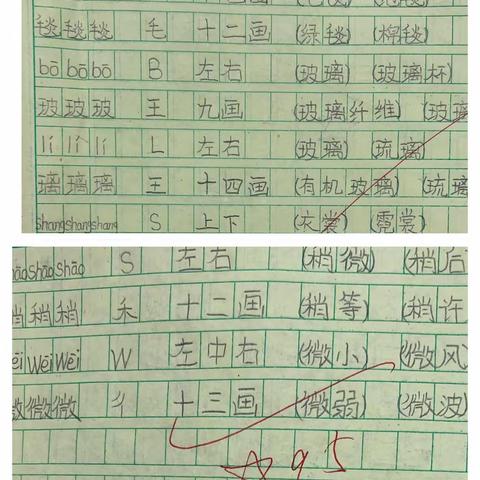 毯毯毯 毛 十二画 (绿毯) (棉毯)
bō bō bō B 左右 (玻璃) (玻璃杯)
玻玻玻 王 九画 (玻璃纤维) (玻璃
lí lí lí L 左右 (玻璃) (琉璃)
璃璃璃 王 十四画 (有机玻璃) (琉璃
shang shang shang S 上下 (衣裳) (霓裳)
shāo shāo S 左右 (稍微) (稍后
稍稍稍 禾 十二画 (稍等) (稍许
Wēi Wēi W 左中右 (微小) (微风
微微微 彳 十三画 (微弱) (微波)
95